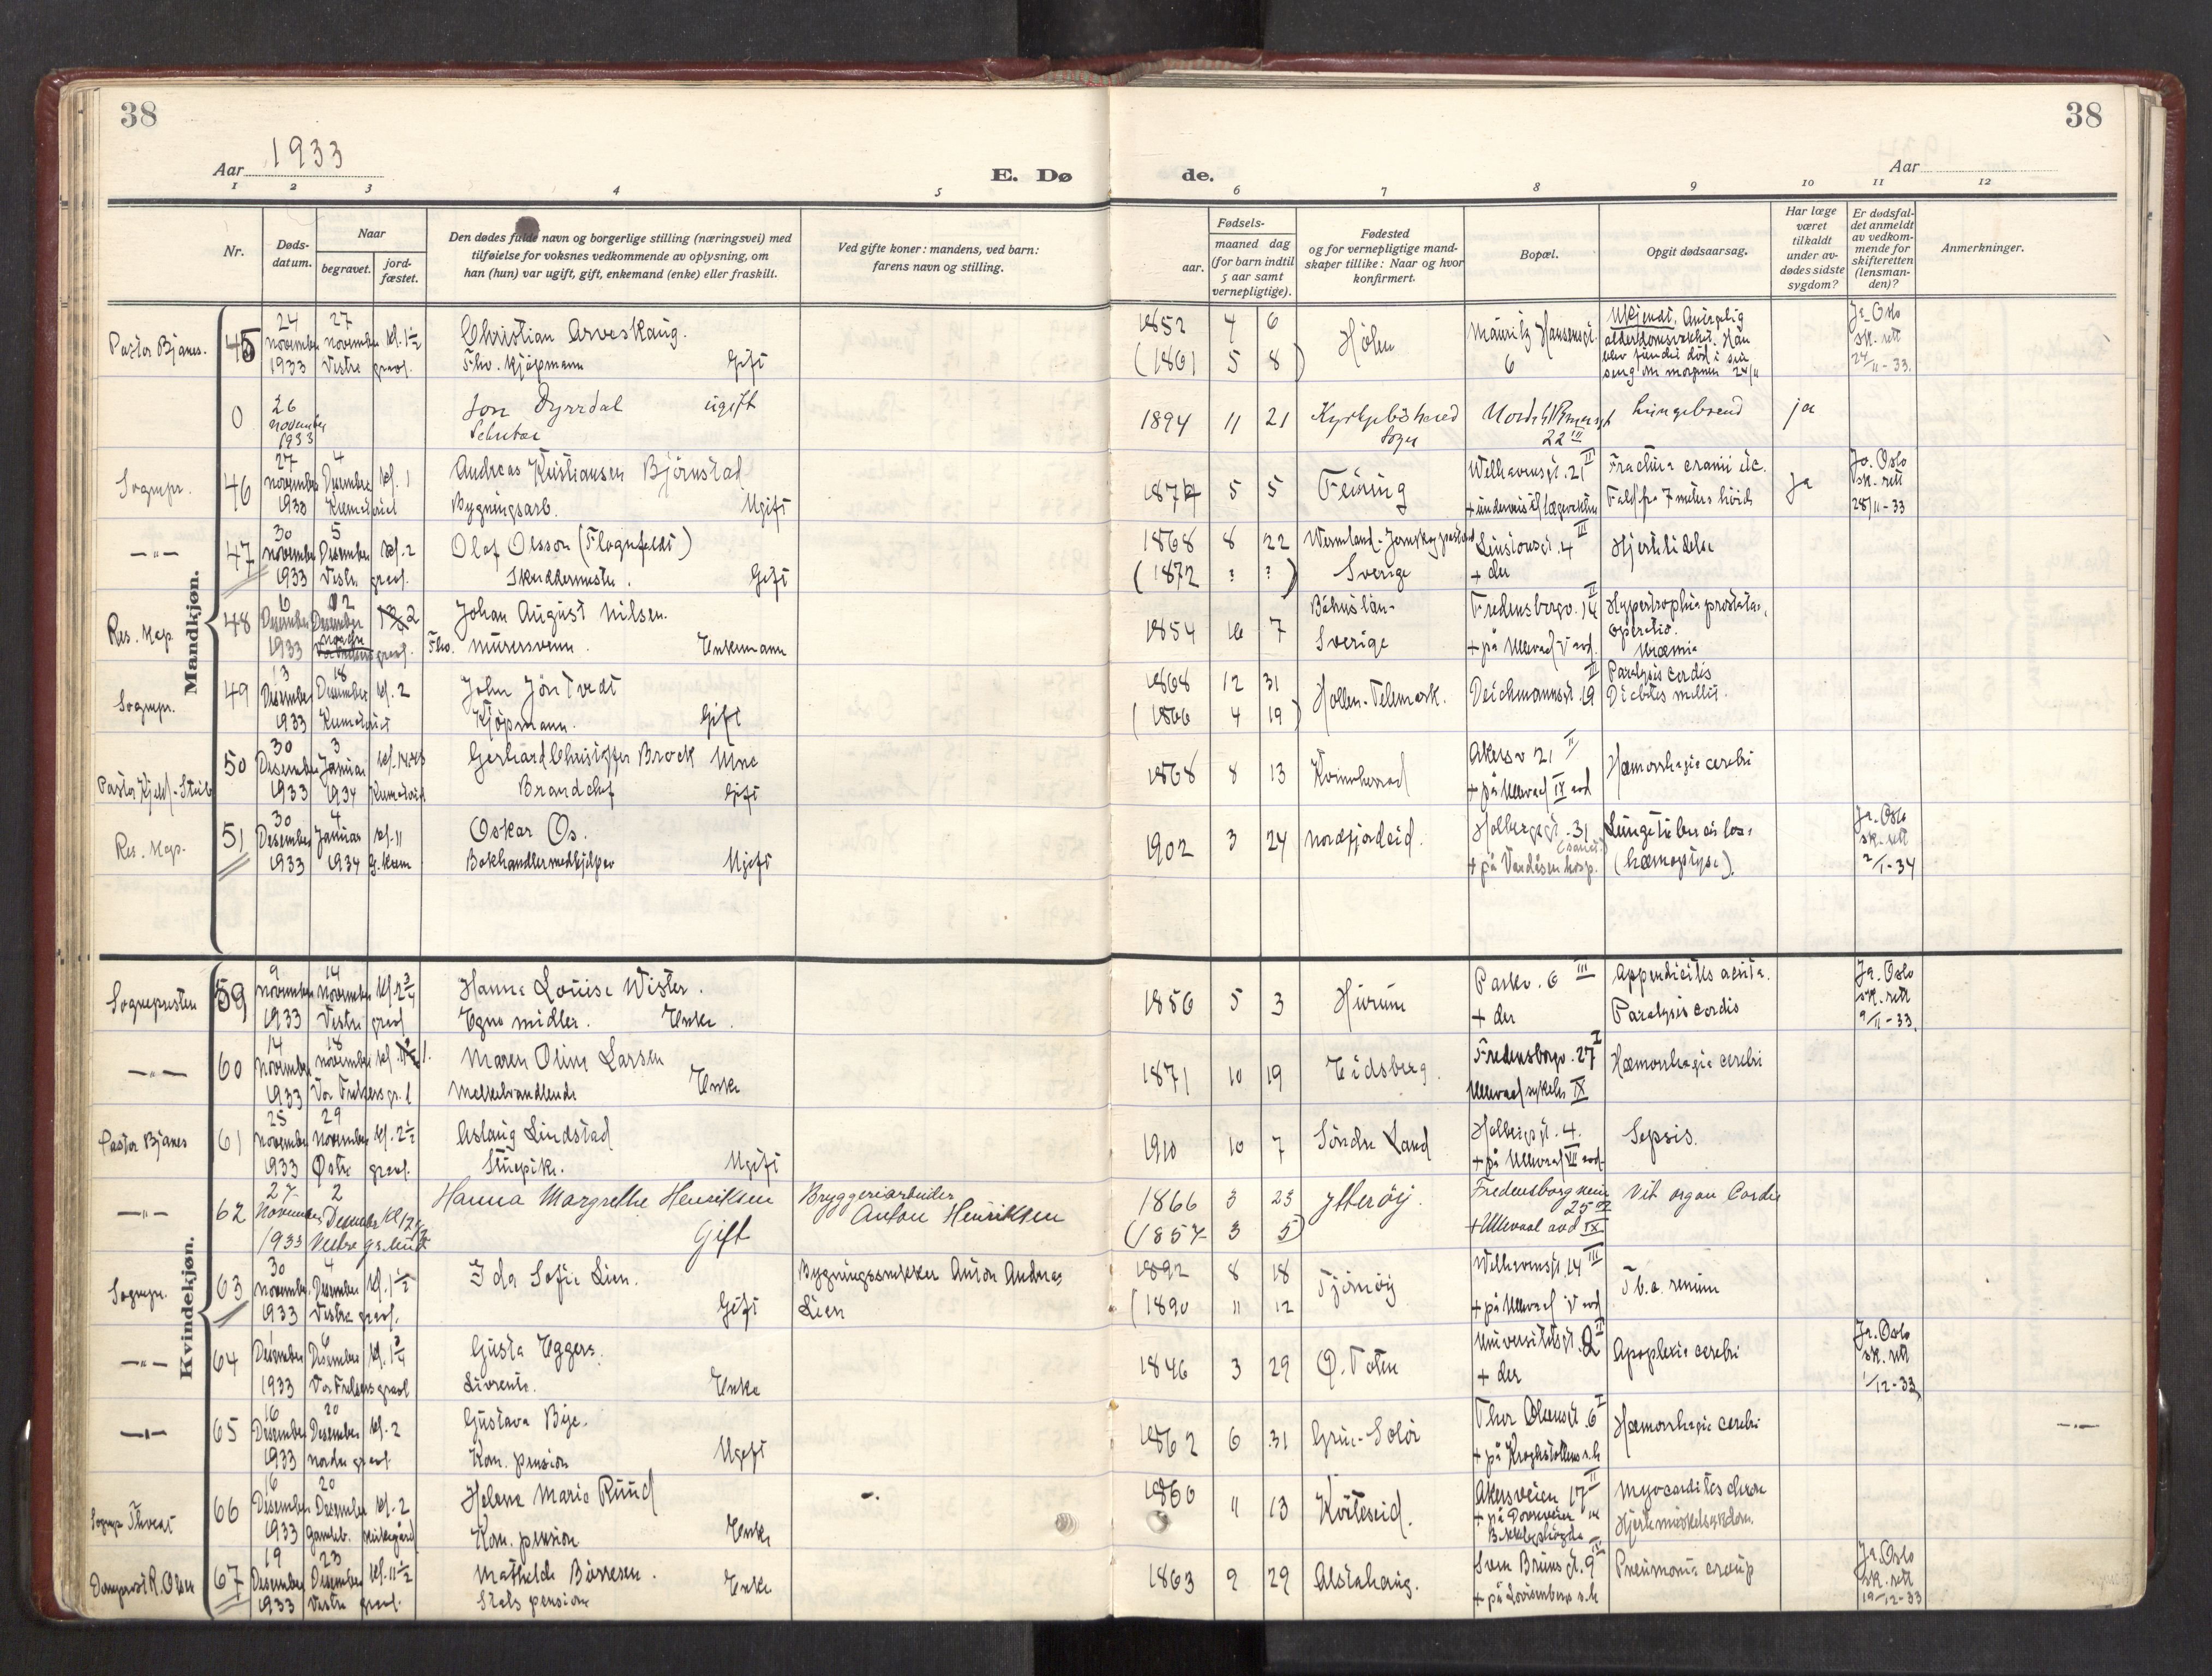 38
38
Aar 1933
E. Dø
de.
Aar
1 2 3 4 5 6 7 8 9 10 11 12
Nr.
Døds-
datum.
Naar
begravet.
jord-
fæstet.
Den dødes fulde navn og borgerlige stilling (næringsvei) med
tilføielse for voksnes vedkommende av oplysning, om
han (hun) var ugift, gift, enkemand (enke) eller fraskilt.
Ved gifte koner: mandens, ved barn:
farens navn og stilling.
Fødsels-
aar.
maaned dag
(for barn indtil
5 aar samt
vernepligtige).
Fødested
og for vernepligtige mand-
skaper tillike: Naar og hvor
konfirmert.
Bopæl.
Opgit dødsaarsag.
Har læge
været
tilkaldt
under av-
dødes sidste
sygdom?
Er dødsfal-
det anmeldt
av vedkom-
mende for
skifteretten
(lensman-
den)?
Anmerkninger.
Mandkjøn.
Pastor Bjanes. 45 24 november 1933 27 november Vestre gravl. kl. 1 1/2
Christian Arveskaug.
Fhv. Kjøpmann Gift
1852 4 6
(1861 5 8)
Hølen
Mauritz Hansensgt. 6
Ukjendt. Antagelig
alderdomssvakhet. Han
blev fundet død i sin
seng om morgenen 24/11
Ja. Oslo
sk. rett
24/11-33.
0 26 november 1933
Jon Dyrrdal ugift
1894 11 21
22 III
Lungebrand
ja
Sognepr. 46 27 november 1933 4 Desember Krematoriet kl. 1
Andreas Kristiansen Bjørnstad
Bygningsarb. Ugift
1874 5 5
Feiring
Welhavensgt. 21 II
+ underveis til lægevakten
Fractura cranii etc.
Fald fra 7 meters høide
Ja
Ja. Oslo
sk. rett
28/11-33
—"— 47 30 november 1933 5 Desember Vestre gravl. kl. 2
Olof Olsson (Flognfeldt)
Skreddermester. Gift
1868 8 22
(1872 ? ?)
Sverige
Linstowsgt. 4 III
+ der
Hjertelidelse
Res. Kap. 48 6 Desember 1933 12 Desember Nordre gravl. 2
Johan August Nilsen.
Fhv. murersvenn. Enkemann
1854 7
Båhuslän-
Sverige
Fredensborgv. 14 II
+ på Ullevaal V avd.
Hypertrophia prostatae,
operatio.
Uræmia
Sognepr. 49 13 Desember 1933 18 Desember Krematoriet kl. 2
John Jøntvedt
Kjøpmann. Gift
1868 12 31
(1866 4 19)
Hollen-Telemark.
Deichmannsgt. 19 II
Paralysis cordis
Diabetes mellit.
Pastor Kjeld-Stub 50 30 Desember 1933 3 Januar 1934 Krematoriet kl. 14.45
Gerhard Christoffer Brock Utne
Brandchef Gift
1868 8 13
Kvinnherrad
Akersv 21 II
+ på Ullevaal IX avd
Hæmorrhagia cerebri
Res. Kap. 51 30 Desember 1933 4 Januar 1934 G. Krem kl. 11
Oskar Os.
Bokhandlermedhjelper Ugift
1902 3 24
Nordfjordeid.
Holbergsgt. 31
+ på Vardåsen hosp.
Lungetuberculose
(hæmoptyse).
Ja. Oslo
sk. rett
2/1-34
Kvindekjøn.
Sognepresten 59 9 november 1933 14 november Vestre gravl kl. 2 3/4
Hanna Louise Wister.
Egne midler. Enke.
1856 5 3
Hurum
Parkv. 6 III
+ der
Appendicitis acuta.
Paralysis cordis
Ja. Oslo
sk. rett
9/11-33.
—"— 60 14 november 1933 18 november Vor Frelsers gr. l kl. 1.
Maren Oline Larsen
Melkehandlende Enke
1871 10 19
Eidsberg.
Fredensborgv. 27 I
Ullevaal sykehus IX
Hæmorrhagia cerebri
Pastor Bjanes 61 25 november 1933 29 november Østre gravl. kl. 2 1/2
Aslaug Lindstad
Stuepike. Ugift
1910 10 7
Søndre Land
Holbergsgt. 4.
+ på Ullevaal VII avd.
Sepsis.
—"— 62 27 November 1933 2 Desember Vestre gr. lund
Hanna Margrethe Henriksen
Gift
Bryggeriarbeider
Anton Henriksen
1866 3 23
(1857 3 5)
Ytterøy.
Fredensborgveien
25
+ Ullevaal avd IX
Vit. organ. Cordis
Sognepr. 63 30 november 1933 4 Desember Vestre gravl. kl. 1 1/2
Ida Sofie Lien.
Gift
Bygningssnekker Anton Andreas
Lien
1892 8 18
(1890 11 12
Tjömöy
Welhavensgt. 14 III
+ på Ullevaal V avd
Tb.c. renum
—"— 64 1 Desember 1933 6 Desember Vor Frelsers gravl kl. 1 3/4
Gusta Eggers.
Livrente. Enke
1846 3 29
Ø. Toten
Universitetsgt. 2 II
+ der
Apoplexia cerebri
Ja. Oslo
sk. rett
1/12-33
—"— 65 16 Desember 1933 20 Desember Nordre gravl. kl. 2
Gustava Bye.
Kom. pension Ugift
1862 6 31
Grue-Solør
Thor Olsensgt. 6 I
+ på Krogstøttens s.h
Hæmorrhagia cerebri
—"—
66 16 Desember 1933 20 Desember Gamleb. kirkegård kl. 2
Helene Marie Ruud
Kom. pension Enke
1860 11 13
Kviteseid.
Akersveien 17 II
Bekkelagshøgda
Myocarditis chron
Hjertemuskelsykdom.
Domprost R. Olsen 67 19 Desember 1933 23 Desember Vestre gravl. kl. 11 1/2
Mathilde Børresen.
Stats pension Enke
1863 9 29
Alstahaug.
Sven Brunsgt. 9 III
+ på Lovisenberg s.h
Pneumonia croup
Ja. Oslo
sk. rett
19/12-33